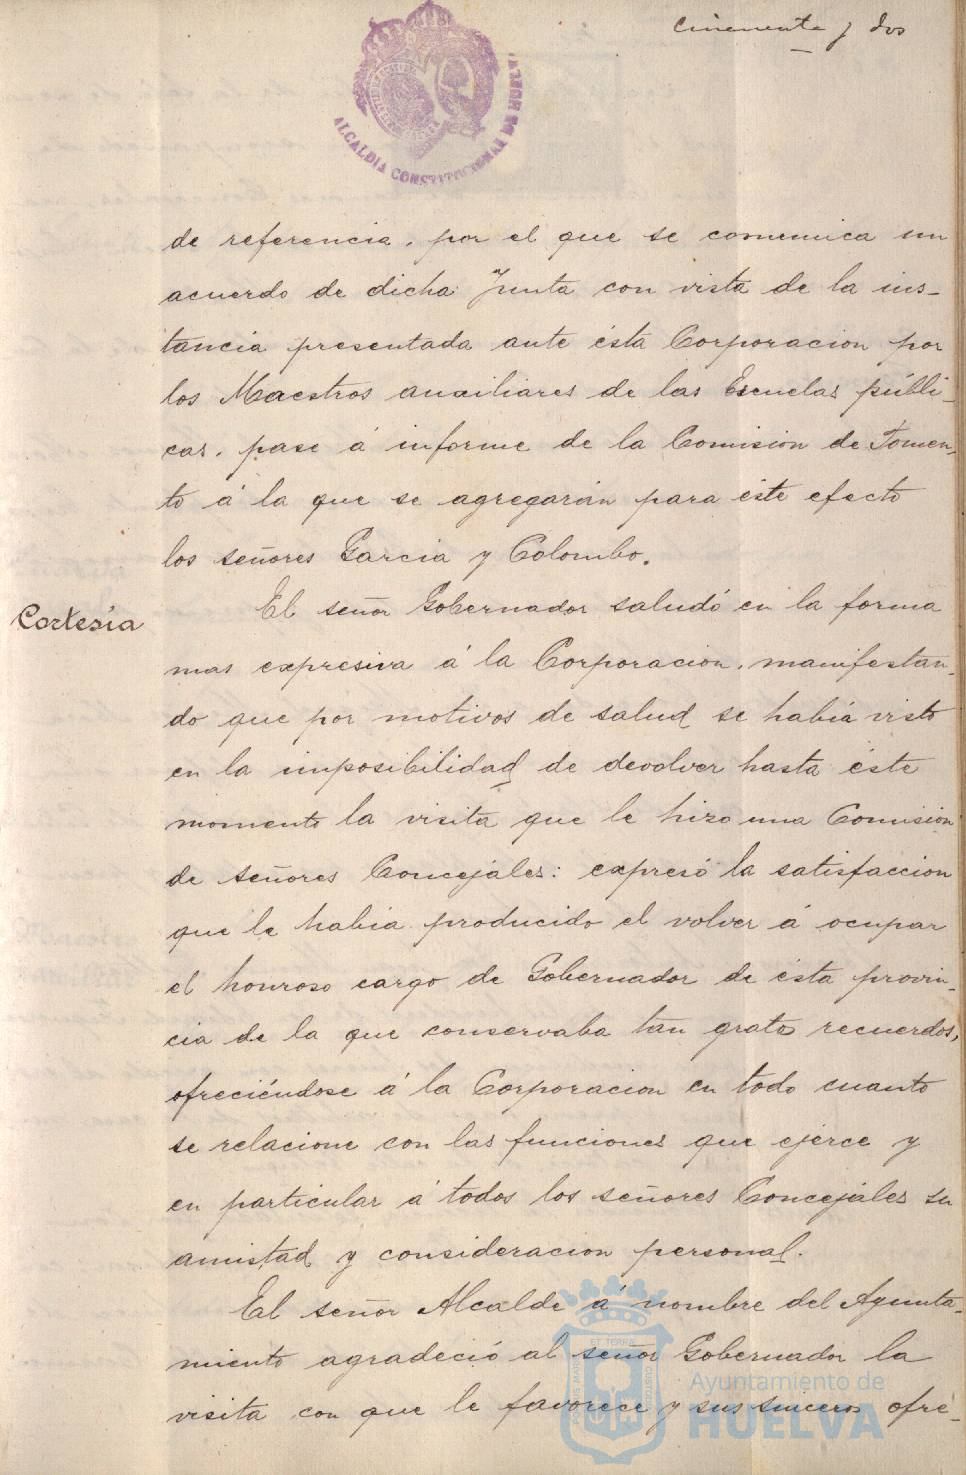 cincuenta y dos
ALCALDIA CONSTITUCIONAL DE HUELVA
de referencia, por el que se comunica un
acuerdo de dicha Junta con vista de la ins-
tancia presentada ante ésta Corporacion por
los Maestros auxiliares de las Escuelas públi-
cas, pase á informe de la Comision de Fomen-
to á la que se agregarán para éste efecto
los señores Garcia y Colombo.
Cortesía
El señor Gobernador saludó en la forma
mas expresiva á la Corporacion, manifestan-
do que por motivos de salud se había visto
en la imposibilidad de devolver hasta éste
momento la visita que le hizo una Comision
de señores Concejales: expresó la satisfaccion
que le habia producido el volver á ocupar
el honroso cargo de Gobernador de ésta provin-
cia de la que conservaba tan gratos recuerdos,
ofreciéndose á la Corporacion en todo cuanto
se relacione con las funciones que ejerce y
en particular á todos los señores Concejales su
amistad y consideracion personal.
El señor Alcalde á nombre del Ayunta-
miento agradeció al señor Gobernador la
visita con que le favorece y sus sinceros ofre-
Ayuntamiento de
HUELVA